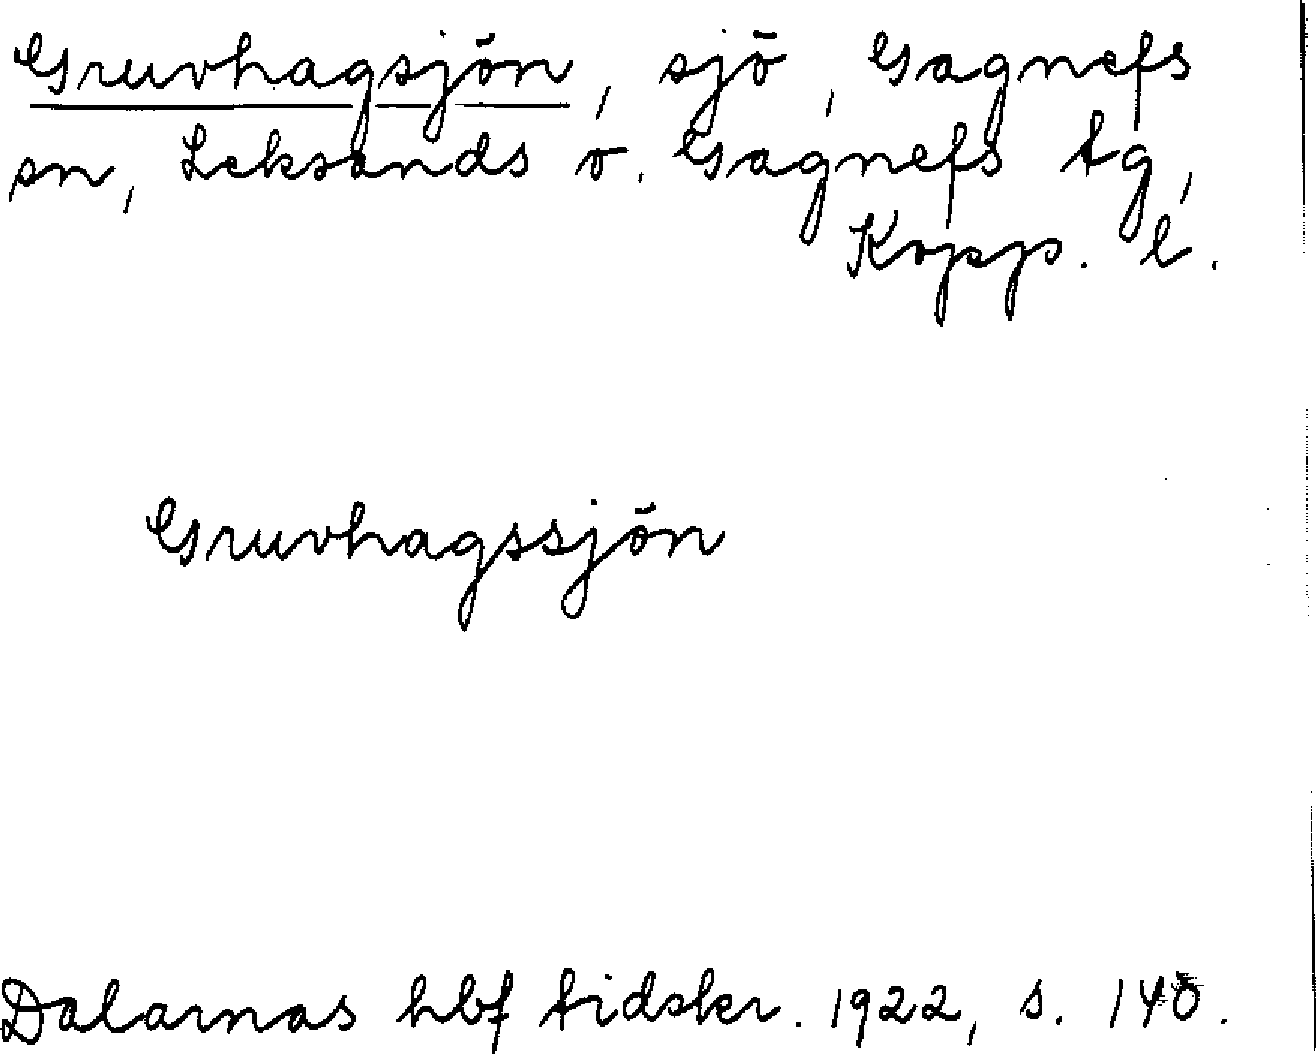 Gruvhagsjön, sjö, Gagnefs
sn, Leksands o. Gagnefs tg,
Kopp. l.
Gruvhagssjön
Dalarnas hbf tidskr. 1922, s.